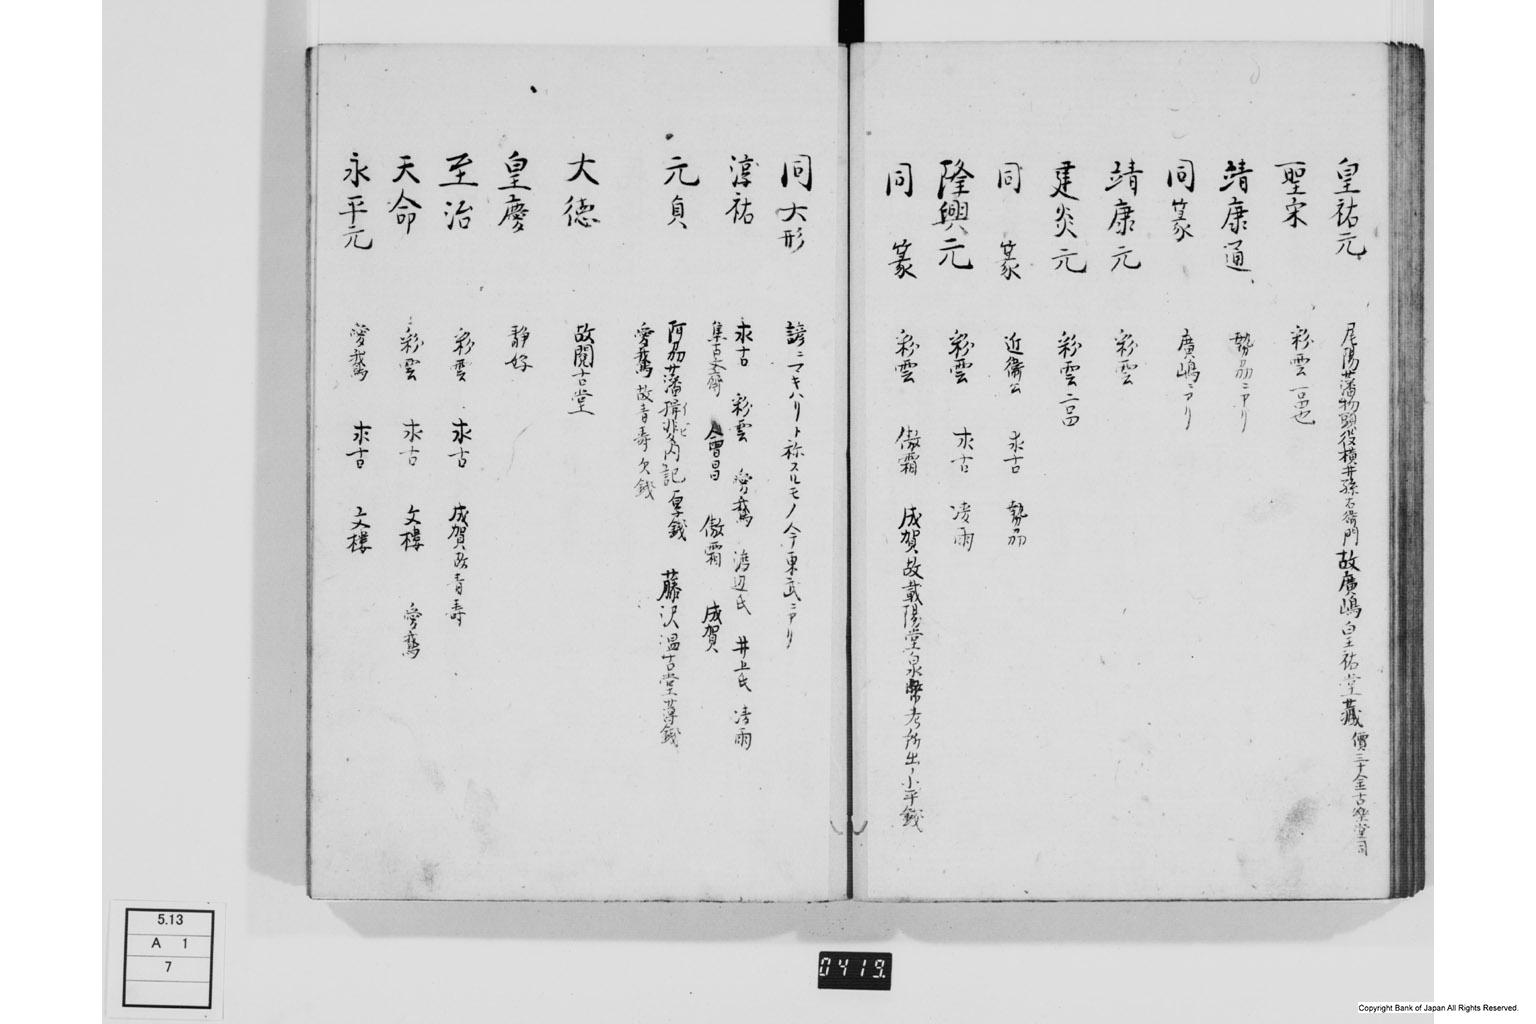 皇祐元 尾陽藩物頭役横井孫右衛門故廣嶋皇祐堂蔵 價三十金古樂堂同
聖宋 彩雲 一品也
靖康通 勢刕ニアリ
同篆 廣嶋ニアリ
靖康元 彩雲
建炎元 彩雲 二品
同篆 近衞公 求古 勢刕
隆興元 彩雲 求古 凌雨
同篆 彩雲 傲霜 成賀 故載陽堂泉幣考所出ノ小平錢
同大形 諺ニマキハリト称スルモノ今東武ニアリ
淳祐 求古 彩雲 愛鵞 渡辺氏 井上氏 凌雨
集古文齋 會昌 傲霜 成賀
元貞 阿刕藩揖斐内記厚錢 藤沢温古堂薄錢
愛鵞 故青寿欠錢
大徳 故閲古堂
皇慶 静好
至治 彩雲 求古 成賀 故青寿
天命 彩雲 求古 文樓 愛鵞
永平元 愛鵞 求古 文樓
5.13
A 1
7
0419.
Copyright Bank of Japan All Rights Reserved.